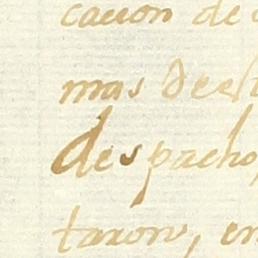 cacion de
mas dech
despacho,
taron, en